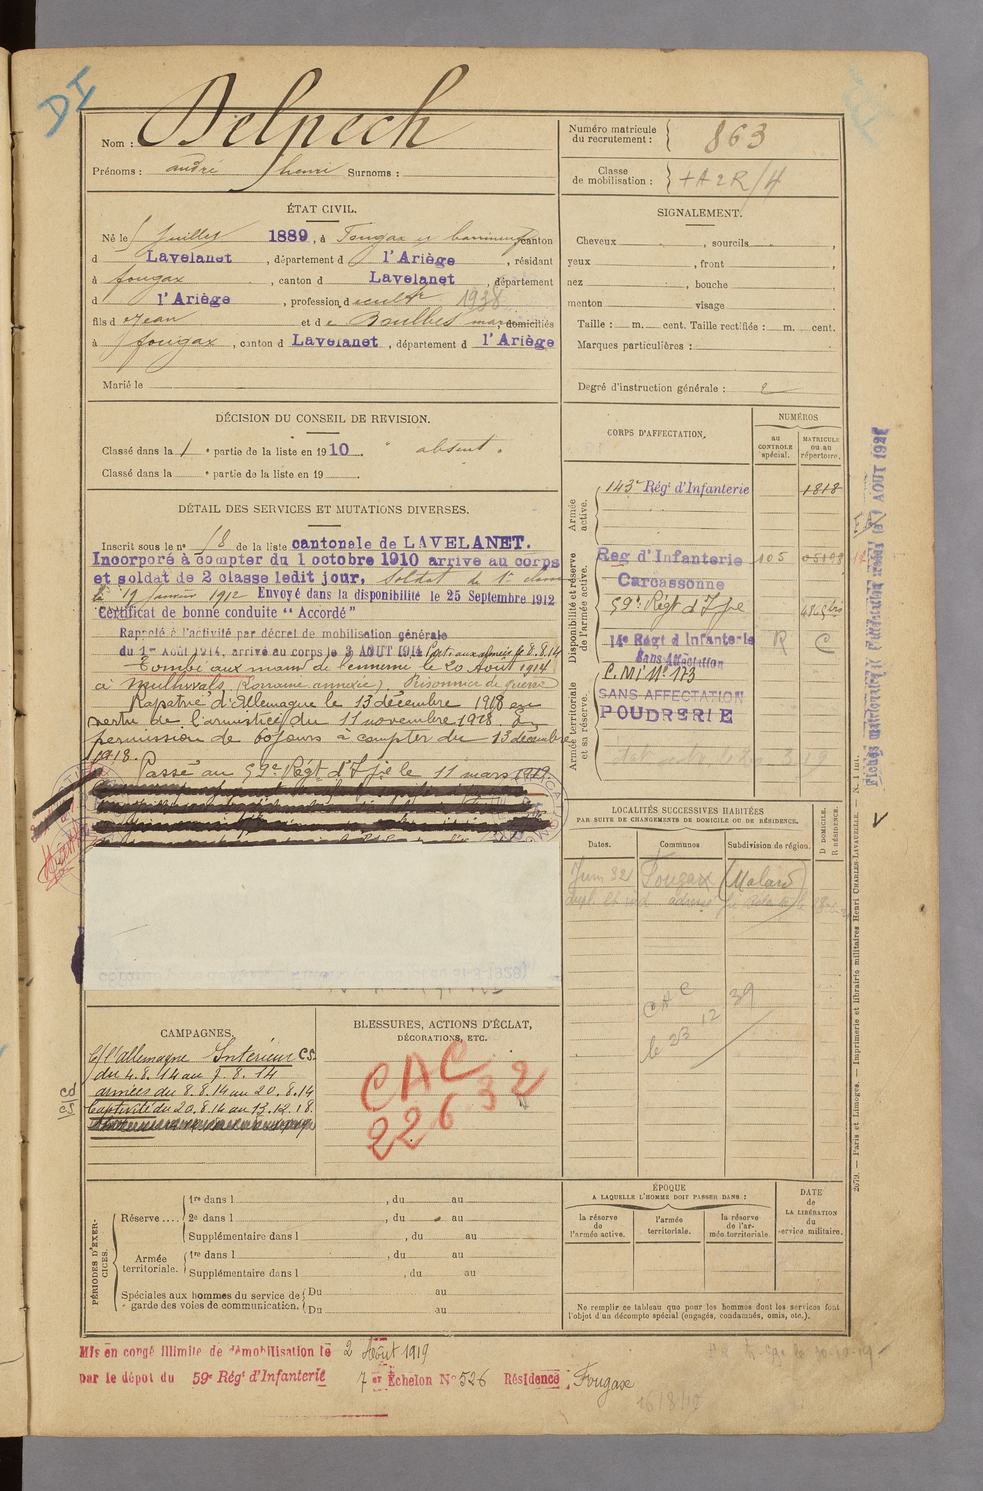 DI
Nom : Delpech
Prénoms : andré henri Surnoms :
Numéro matricule du recrutement : 863
Classe de mobilisation :
ÉTAT CIVIL.
Né le juillet 1889, à Fougax et canton
d Lavelanet, département d l'Ariège, résidant
à fougax, canton d Lavelanet, département
d l'Ariège, profession d cultr 1938
fils d Jean et de domiciliés
à fougax, canton d Lavelanet, département d l'Ariège
Marié le
SIGNALEMENT.
Cheveux , sourcils ,
yeux , front ,
nez , bouche ,
menton visage
Taille : m. cent. Taille rectifiée : m. cent.
Marques particulières :
Degré d'instruction générale : 2
DÉCISION DU CONSEIL DE REVISION.
Classé dans la 1 e partie de la liste en 1910. absent.
Classé dans la e partie de la liste en 19 .
DÉTAIL DES SERVICES ET MUTATIONS DIVERSES.
Inscrit sous le no 18 de la liste cantonale de LAVELANET.
Incorporé à compter du 1 octobre 1910 arrive au corps
et soldat de 2 classe ledit jour, soldat de 1e classe
le 19 janvier 1912 Envoyé dans la disponibilité le 25 Septembre 1912
Certificat de bonne conduite "Accordé"
Rappelé à l'activité par décret de mobilisation générale
du 1er Août 1914, arrivé au corps le 3 AOUT 1914 Parti aux armées le 8.8.14
Tombé aux mains de l'ennemi le 20 Août 1914
à (Lorraine annexée). Prisonnier de guerre
Rapatrié d'Allemagne le 13 décembre 1918 en
vertu de l'armistice du 11 novembre 1918. En
permission de 60 jours à compter du 13 décembre
1918.
Passé au 59e Régt d'Ifie le 11 mars 1919.
CORPS D'AFFECTATION.
NUMÉROS
au CONTROLE spécial.
MATRICULE ou au répertoire.
Armée active.
143e Régt d'Infanterie 1818
Disponibilité et réserve de l'armée active.
Reg d'Infanterie 105
Carcassonne
59e Régt d'Ifie
14e Régt d'Infanterie R C
Sans Affectation
Armée territoriale et sa réserve.
C.M.I No 173
SANS AFFECTATION
POUDRERIE
LOCALITÉS SUCCESSIVES HABITÉES
PAR SUITE DE CHANGEMENTS DE DOMICILE OU DE RÉSIDENCE.
Dates. Communes Subdivision de région. D DOMICILE. R RÉSIDENCE.
Juin 32 Fougax
CAC 39
le 23 12
CAMPAGNES.
C/ l'allemagne Intérieur C.S.
du 4.8.14 au 7.8.14
armées du 8.8.14 au 20.8.14
Captivité du 20.8.14 au 13.12.18.
BLESSURES, ACTIONS D'ÉCLAT, DÉCORATIONS, ETC.
CAC
22 6 32
PÉRIODES D'EXERCICES.
Réserve .... 1re dans l , du au
2e dans l , du au
Supplémentaire dans l , du au
Armée territoriale. 1re dans l , du au
Supplémentaire dans l , du au
Spéciales aux hommes du service de garde des voies de communication. Du au
Du au
ÉPOQUE
A LAQUELLE L'HOMME DOIT PASSER DANS :
la réserve de l'armée active.
l'armée territoriale.
la réserve de l'armée territoriale.
DATE de LA LIBÉRATION du service militaire.
Ne remplir ce tableau que pour les hommes dont les services font
l'objet d'un décompte spécial (engagés, condamnés, omis, etc.).
2079. — Paris et Limoges. — Imprimerie et librairie militaires Henri CHARLES-LAVAUZELLE. — N. 1 int.
Mis en congé illimité de démobilisation le 2 Août 1919
par le dépôt du 59e Régt d'Infanterie 7 er Échelon No 526 Résidence Fougax